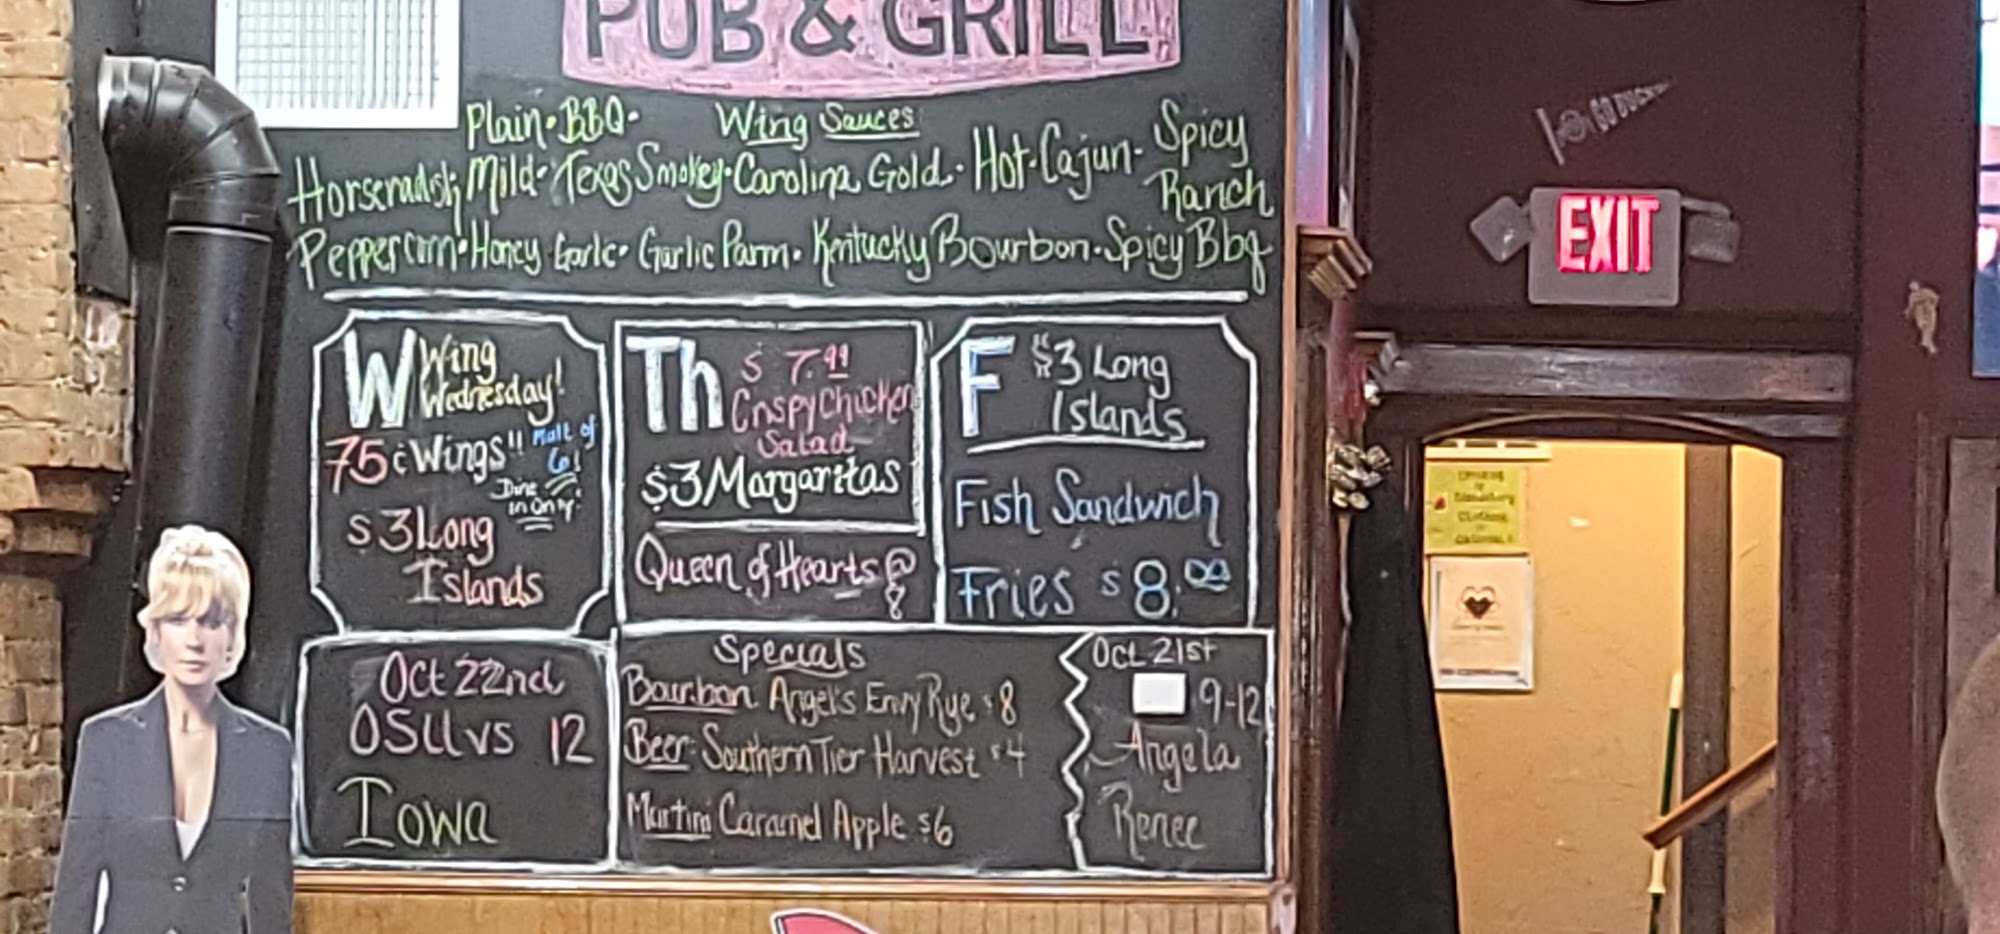 PUB & GRILL
Plain · BBQ · Wing Sauces
Horseradish Mild · Texas Smokey · Carolina Gold · Hot · Cajun · Spicy Ranch
Peppercorn · Honey Garlic · Garlic Parm · Kentucky Bourbon · Spicy Bbq
W Wing
Wednesday!
75¢ Wings!!
Mult of
6!
Dine
in Only!
$3 Long
Islands
Th $7.99
Crispy Chicken
Salad
$3 Margaritas
Queen of Hearts @
8
F $3 Long
Islands
Fish Sandwich
Fries $8.00
Oct 22nd
OSU vs 12
Iowa
Specials
Bourbon: Angel's Envy Rye $8
Beer: Southern Tier Harvest $4
Martini Caramel Apple $6
Oct 21st
9-12
Angela
Renee
GO BUCKS
EXIT